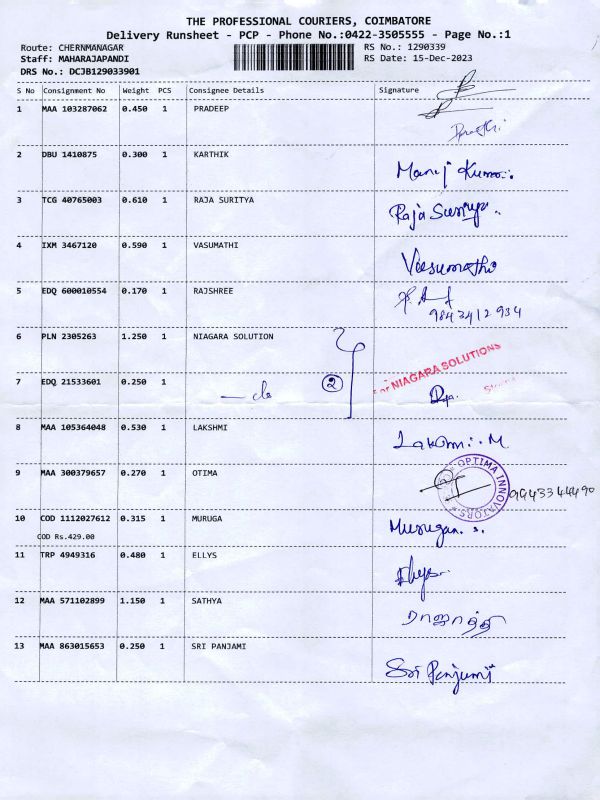 THE PROFESSIONAL COURIERS, COIMBATORE
Delivery Runsheet - PCP - Phone No.:0422-3505555 - Page No.:1
Route: CHERNMANAGAR RS No.: 1290339
Staff: MAHARAJAPANDI RS Date: 15-Dec-2023
DRS No.: DCJB129033901
S No Consignment No Weight PCS Consignee Details Signature
1 MAA 103287062 0.450 1 PRADEEP
2 DBU 1410875 0.300 1 KARTHIK Manoj Kumar
3 TCG 40765003 0.610 1 RAJA SURITYA Raja Suriya
4 IXM 3467120 0.590 1 VASUMATHI Vasumathi
5 EDQ 600010554 0.170 1 RAJSHREE
9843412934
6 PLN 2305263 1.250 1 NIAGARA SOLUTION For NIAGARA SOLUTIONS
7 EDQ 21533601 0.250 1 — do 2
8 MAA 105364048 0.530 1 LAKSHMI Lakshmi. M
9 MAA 300379657 0.270 1 OTIMA OPTIMA INNOVATORS 9943344490
10 COD 1112027612 0.315 1 MURUGA Murugan. s.
COD Rs.429.00
11 TRP 4949316 0.480 1 ELLYS
12 MAA 571102899 1.150 1 SATHYA ராஜாத்தி
13 MAA 863015653 0.250 1 SRI PANJAMI Sri Panjumi